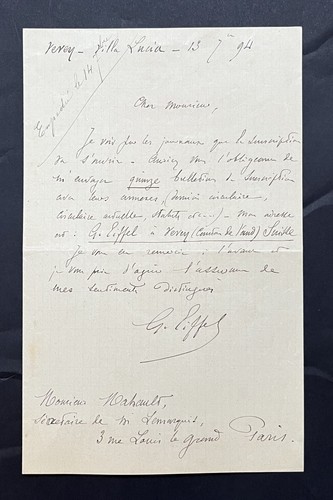 Vevey - Villa Lucia - 13 7re 94
Expédié le 14
Cher Monsieur,
Je vois par les journaux que la souscription
va s'ouvrir - Auriez vous l'obligeance de
m'envoyer quinze bulletins de souscription
avec leurs annexes (dernière circulaire,
circulaire actuelle, statuts etc--) - mon adresse
est: G. Eiffel à Vevey (Canton de Vaud) Suisse
Je vous en remercie à l'avance et
je vous prie d'agréer l'assurance de
mes sentiments distingués
G. Eiffel
Monsieur Mahault,
Secrétaire de M Lemarquis,
3 rue Louis le Grand Paris.